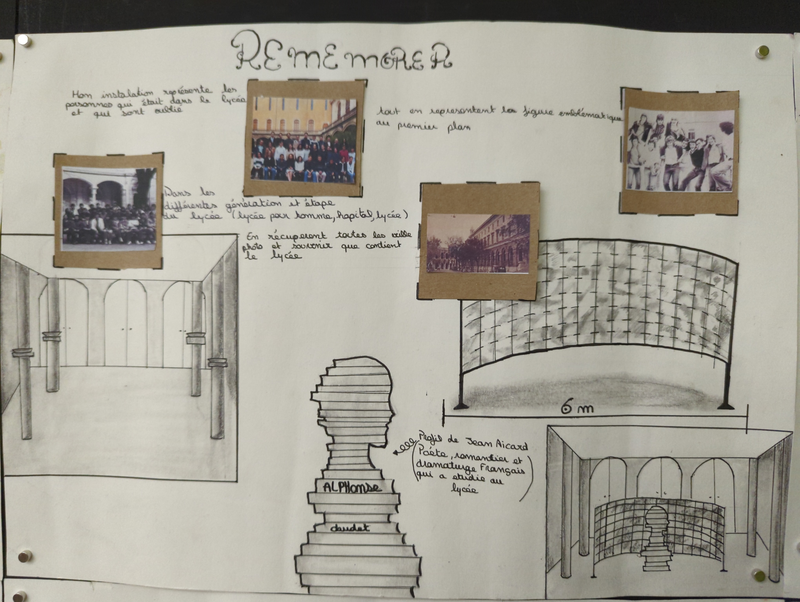 REMEMORER
Mon instalation représente les
personnes qui était dans le lycée
et qui sont oublié
tout en representent la figure emblématique
au premier plan
Dans les
différentes génération et étape
du lycée (lycée pour homme, hopital, lycée)
En récuperent toutes les vieille
photo et souvenir que contient
le lycée
6 m
Profil de Jean Aicard
(Poéte, romantier et
dramaturge Français
qui a etudié au
lycée)
ALPHONSE
daudet